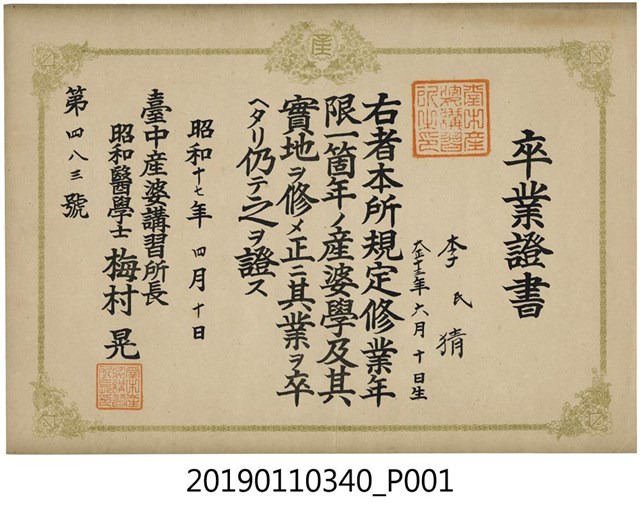 卒業證書
李氏猜
大正十三年六月十日生
右者本所規定修業年
限一箇年ノ産婆學及其
實地ヲ修メ正ニ其業ヲ卒
ヘタリ仍テ之ヲ證ス
昭和十七年四月十日
臺中産婆講習所長
昭和醫學士 梅村晃
第四八三號
産
臺中産
婆講習
所之印
20190110340_P001